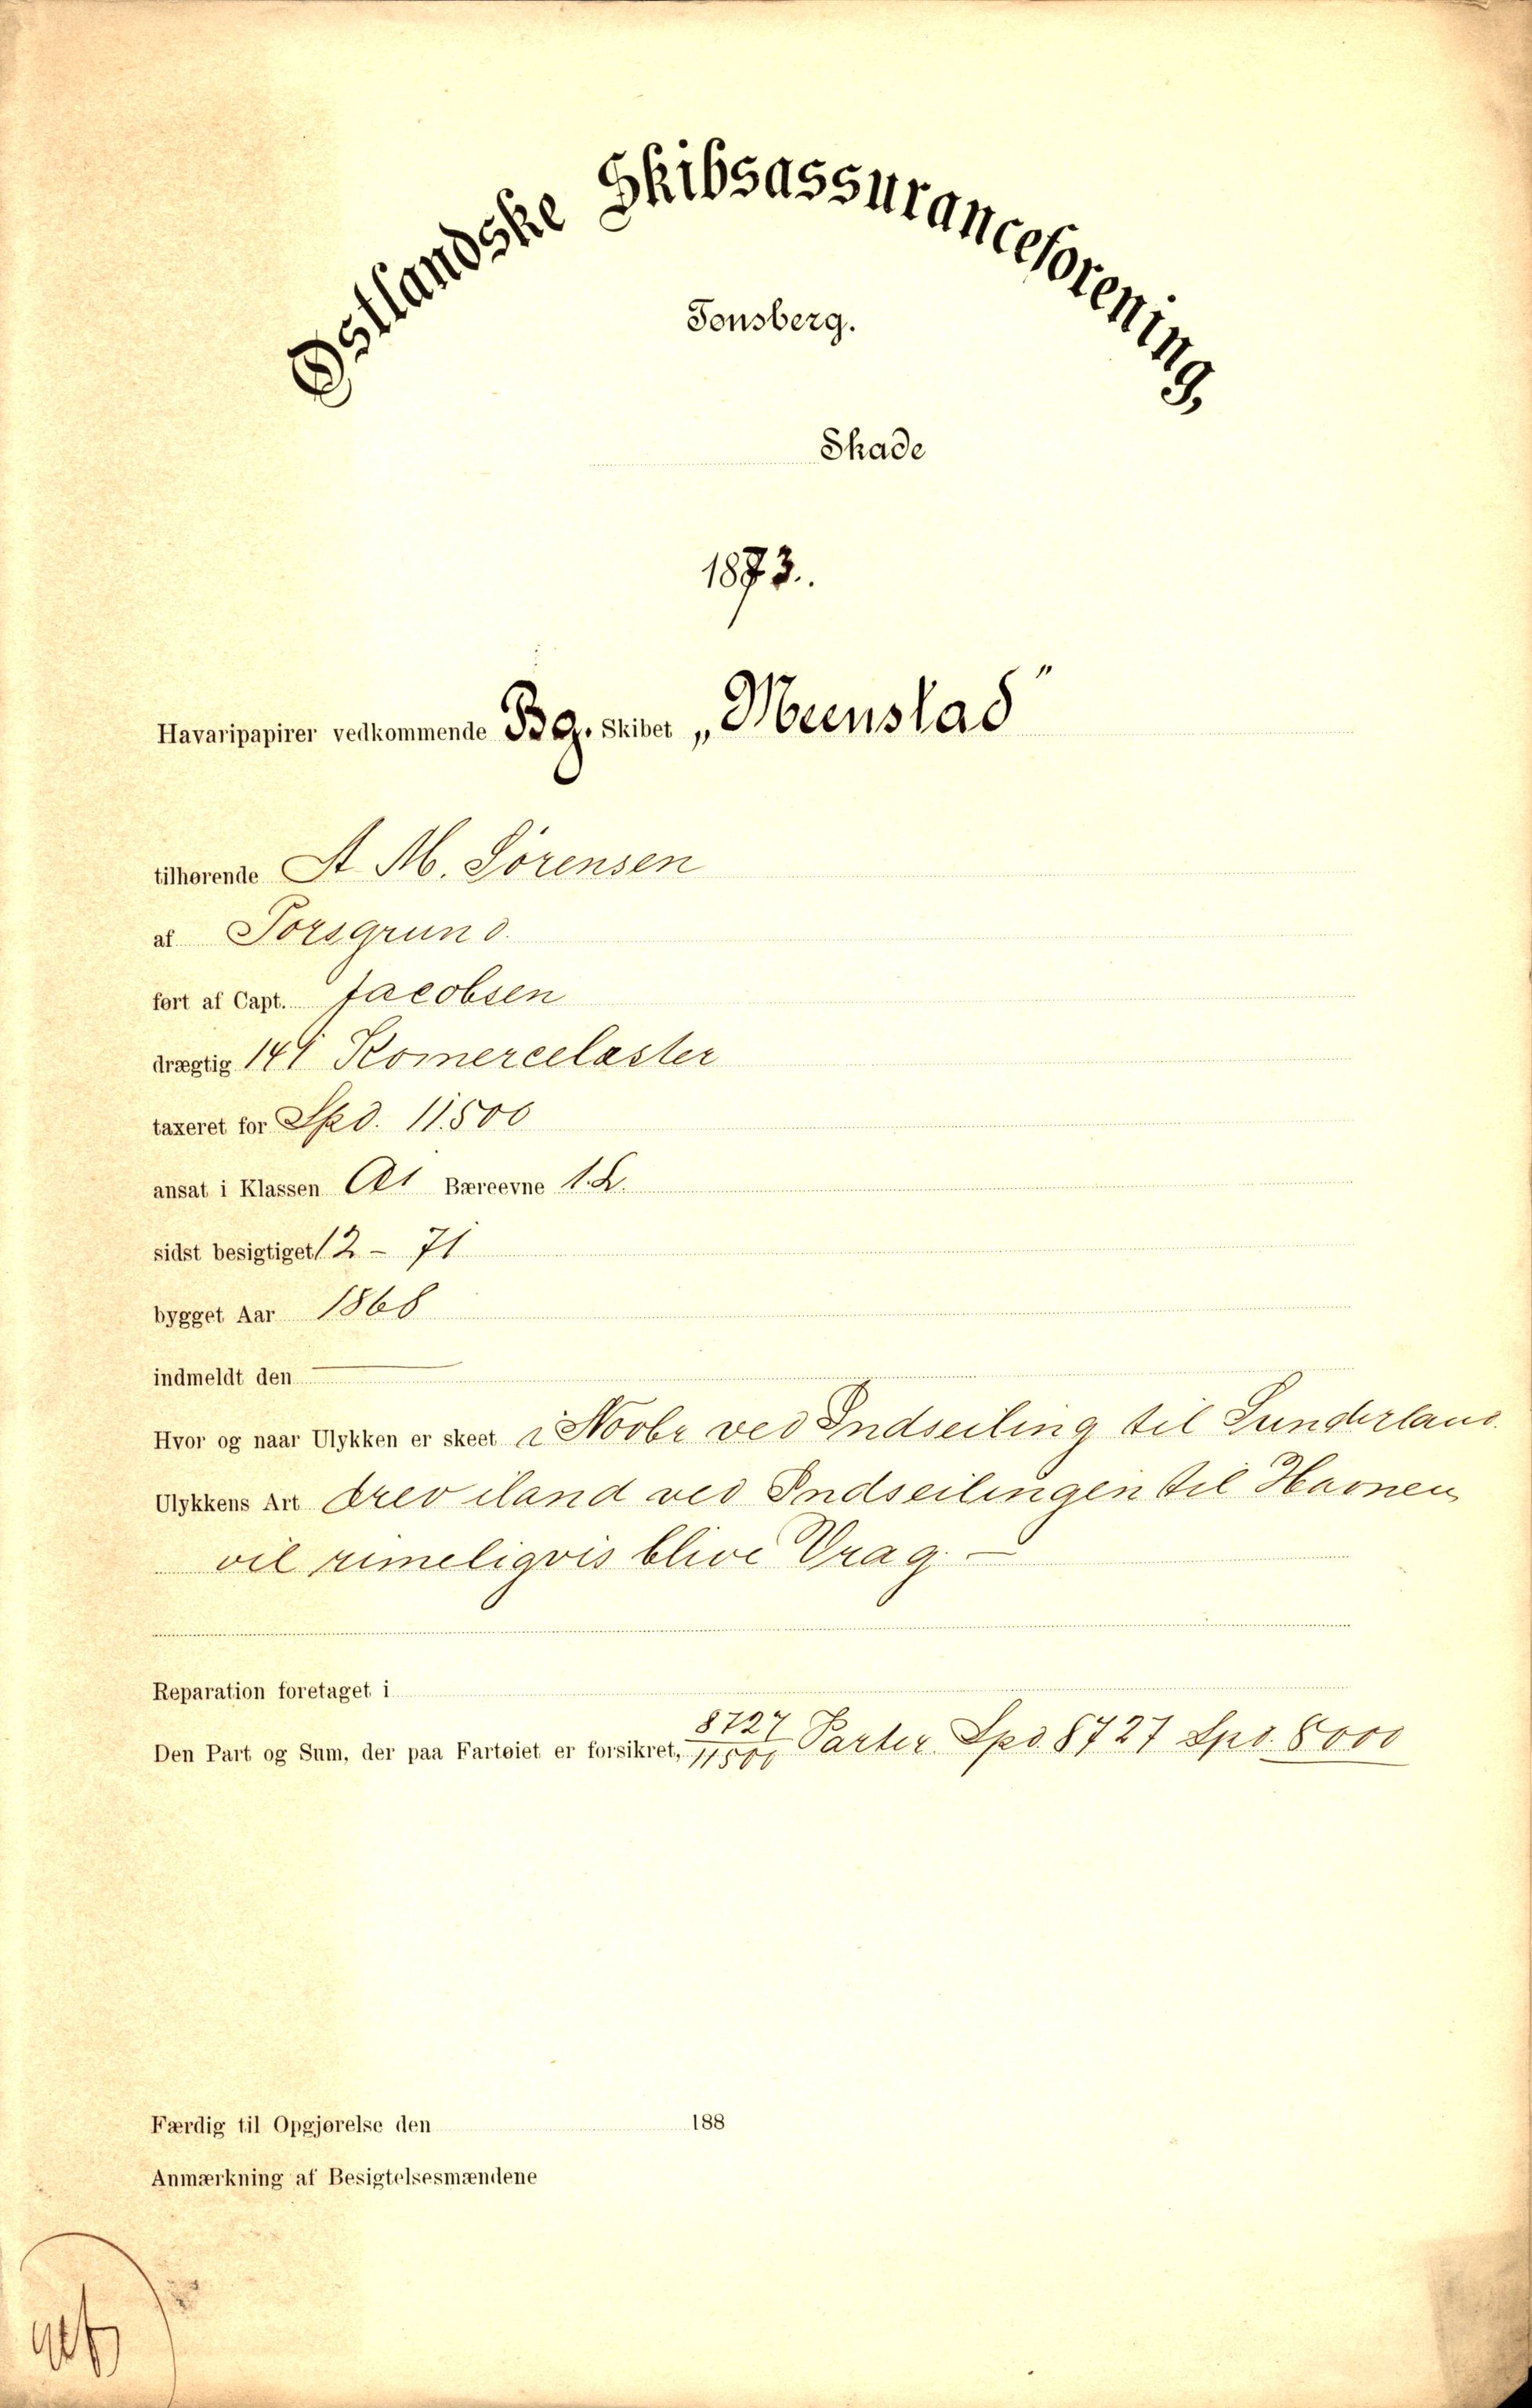 Østlandske Skibsassuranceforening,
Tønsberg.
Skade
1873.
Havaripapirer vedkommende Bg. Skibet „Meenstad"
tilhørende A M. Sörensen
af Porsgrund.
ført af Capt. Jacobsen
drægtig 141 Komercelæster
taxeret for Spd. 11.500
ansat i Klassen A1 Bæreevne 1. L.
sidst besigtiget 12 - 71
bygget Aar 1868
indmeldt den
Hvor og naar Ulykken er skeet i Novbr ved Indseiling til Sunderland.
Ulykkens Art drev iland ved Indseilingen til Havnen
vil rimeligvis blive Vrag. —
Reparation foretaget i
Den Part og Sum, der paa Fartøiet er forsikret, 8727/11500 Parter. Spd. 8727 Spd. 8000
Færdig til Opgjørelse den 188
Anmærkning af Besigtelsesmændene